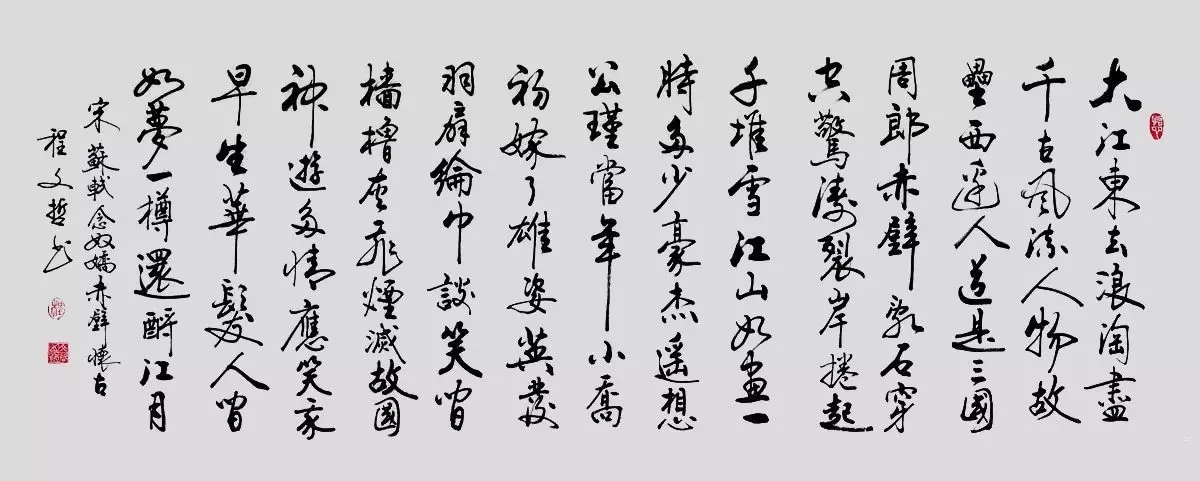 大江東去浪淘盡
千古風流人物故
壘西邊人道是三國
周郎赤壁亂石穿
空驚濤裂岸捲起
千堆雪江山如畫一
時多少豪杰遥想
公瑾當年小喬
初嫁了雄姿英發
羽扇綸巾談笑間
檣櫓灰飛煙滅故國
神遊多情應笑我
早生華髮人間
如夢一樽還酹江月
宋蘇軾念奴嬌赤壁懷古
程文哲书